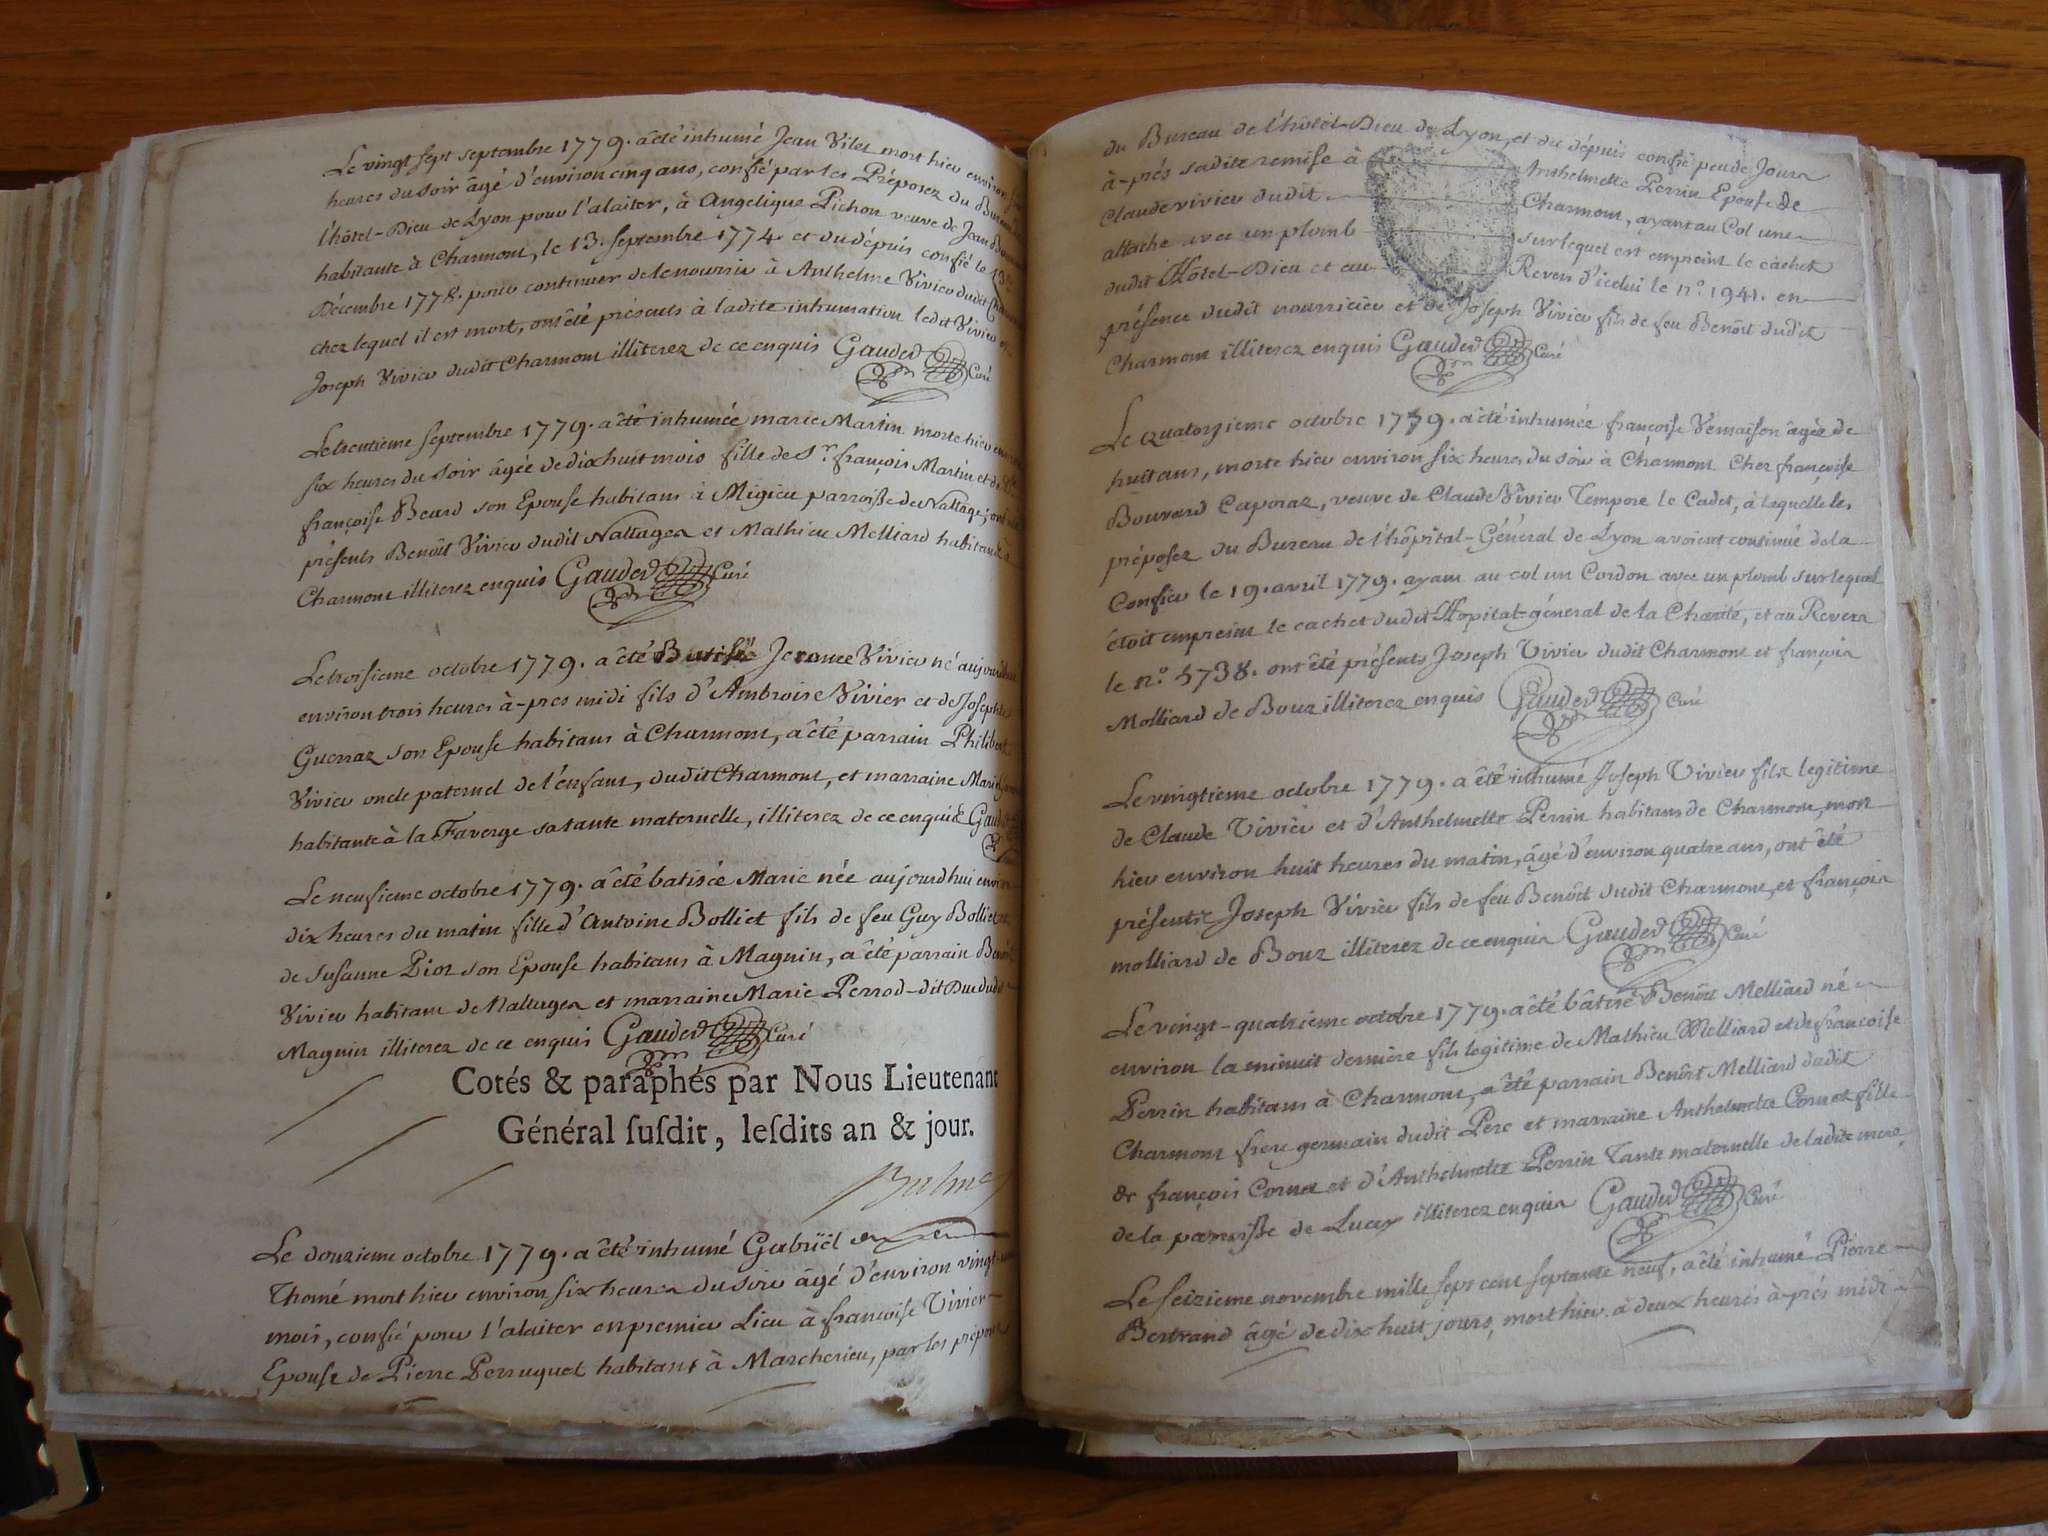 Le vingt sept septembre 1779. a été inhumé Jean Vilet mort hier environ
heures du soir âgé d'environ cinq ans, confié par les Préposez du Bureau
l'hôtel-Dieu de Lyon pour l'alaiter, à Angelique Pichon veuve de Jean
habitante à Charmont, le 13. septembre 1774. et du dépuis confié le
Décembre 1778. pour continuer de le nourrir à Anthelme Vivier dudit
chez lequel il est mort, ont été présents à ladite inhumation ledit Vivier et
Joseph Vivier dudit Charmont illiterez de ce enquis Gauded Curé
Le trentieme septembre 1779. a été inhumée marie Martin morte hier
six heures du soir âgée de dix huit mois fille de Sr. françois Martin et de
françoise Beard son Epouse habitans à Migieu parroisse de Nattage;
présents Benoît Vivier dudit Nattages et Mathieu Melliard habitant
Charmont illiterez enquis Gauded Curé
Le troisieme octobre 1779. a été Batisé Jerome Vivier né aujourdhui
environ trois heures à-pres midi fils d'Ambroise Vivier et de Josephte
Guerraz son Epouse habitans à Charmont, a été parrain Philibert
Vivier oncle paternel de l'enfant, dudit Charmont, et marraine Marie
habitante à la Faverge sa tante maternelle, illiterez de ce enquis
Le neufieme octobre 1779. a été batisée Marie née aujourdhui environ
dix heures du matin fille d'Antoine Bolliet fils de feu Guy Bolliet
de Susanne Pioz son Epouse habitans à Magnin, a été parrain Benoît
Vivier habitant de Nattages et marraine Marie Perrod-dit Duc dudit
Magnin illiterez de ce enquis Gauded Curé
Cotés & paraphés par Nous Lieutenant
Général ſuſdit, leſdits an & jour.
Le douzieme octobre 1779. a été inhumé Gabriël
Thomé mort hier environ six heures du soir âgé d'environ vingt
mois, confié pour l'alaiter en premier Lieu à françoise Vivier
Epouse de Pierre Perruquet habitant à Marcherieu, par les préposez
du Bureau de l'hôtel-Dieu de Lyon, et du dépuis confié peu de Jours
à-prés sadite remise à Anthelmette Perrin Epouse de
Claude vivier dudit Charmont, ayant au Col une
attache avec un plomb sur lequel est empreint le cachet
dudit Hôtel-Dieu et au Revers d'icelui le n.o 1941. en
présence dudit nourricier et de Joseph Vivier fils de feu Benôit dudit
Charmont illiterez enquis Gauded Curé
Le quatorzieme octobre 1779. a été inhumée françoise Vernaison âgée de
huit ans, morte hier environ six heures du soir à Charmont chez françoise
Bouvard Caponaz, veuve de Claude Vivier Tempore le Cadet, à laquelle les
préposez du Bureau de l'hôpital-Général de Lyon avoient continué de la
Confier le 19. avril 1779. ayant au col un Cordon avec un plomb sur lequel
étoit empreint le cachet dudit Hopital-général de la Charité, et au Revers
le n.o 5738. ont été présents Joseph Vivier dudit Charmont et françois
Molliard de Bouz illiterez enquis Gauded Curé
Le vingtieme octobre 1779. a été inhumé Joseph Vivier fils legitime
de Claude Vivier et d'Anthelmette Perrin habitans de Charmont, mort
hier environ huit heures du matin, âgé d'environ quatre ans, ont été
présents Joseph Vivier fils de feu Benôit dudit Charmont, et françois
molliard de Bouz illiterez de ce enquis Gauded Curé
Le vingt-quatrieme octobre 1779. a été bâtisé Benôit Melliard né
environ la minuit derniére fils legitime de Mathieu Melliard et de françoise
Perrin habitans à Charmont, a été parrain Benôit Melliard dudit
Charmont frère germain dudit Pere et marraine Anthelmette Cornet fille
de françois Cornet et d'Anthelmette Perrin Tante maternelle de ladite mere,
de la parroisse de Lucey illiterez enquis Gauded Curé
Le seizieme novembre mille sept cent septante neuf, a été inhumé Pierre
Bertrand âgé de dix huit jours, mort hier à deux heures à-prés midi